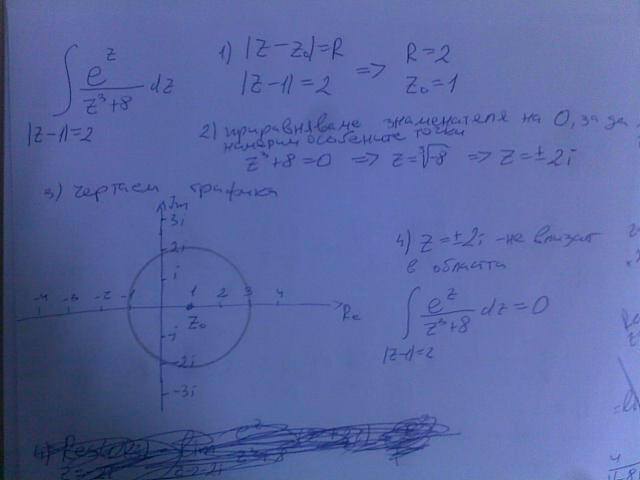 ∫ e^z / (z³+8) dz
|z-1|=2
1) |z-z₀|=R => R=2
|z-1|=2 z₀=1
2) приравняваме знаменателя на 0, за да
намерим особените точки
z³+8=0 => z=∛-8 => z=±2i
3) чертаем графика
Im
3i
2i
i
-4 -3 -2 -1 1 2 3 4 Re
z₀
-i
-2i
-3i
4) z=±2i -не влизат
в областта
∫ e^z / (z³+8) dz=0
|z-1|=2